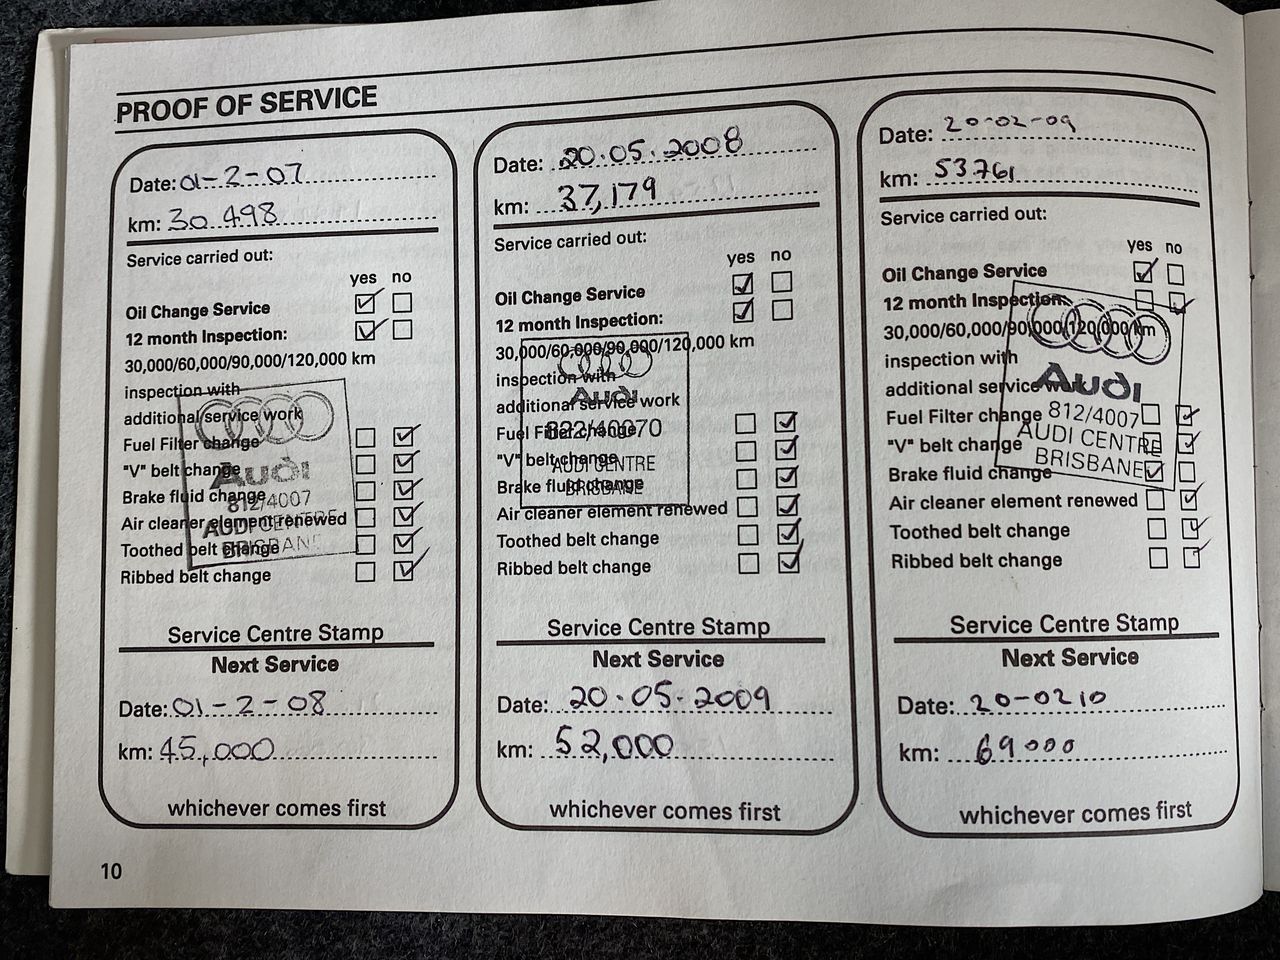 PROOF OF SERVICE
Date: 01-2-07
km: 30 498
Service carried out:
yes no
Oil Change Service
12 month Inspection:
30,000/60,000/90,000/120,000 km
inspection with
additional service work
Fuel Filter change
"V" belt change
Brake fluid change
Air cleaner element renewed
Toothed belt change
Ribbed belt change
Audi
812/4007
AUDI CENTRE
BRISBANE
Service Centre Stamp
Next Service
Date: 01-2-08
km: 45,000
whichever comes first
Date: 20.05.2008
km: 37,179
Service carried out:
yes no
Oil Change Service
12 month Inspection:
30,000/60,000/90,000/120,000 km
inspection with
additional service work
Fuel Filter change
"V" belt change
Brake fluid change
Air cleaner element renewed
Toothed belt change
Ribbed belt change
Audi
AUDI CENTRE
BRISBANE
Service Centre Stamp
Next Service
Date: 20.05.2009
km: 52,000
whichever comes first
Date: 20-02-09
km: 53761
Service carried out:
yes no
Oil Change Service
12 month Inspection:
30,000/60,000/90,000/120,000 km
inspection with
additional service work
Fuel Filter change
"V" belt change
Brake fluid change
Air cleaner element renewed
Toothed belt change
Ribbed belt change
Audi
812/4007
AUDI CENTRE
BRISBANE
Service Centre Stamp
Next Service
Date: 20-0210
km: 69000
whichever comes first
10